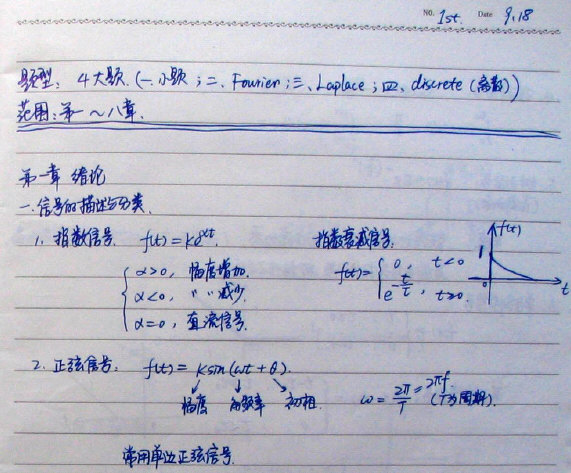 No. 1st. Date 9.18
题型: 4大题. (一、小题; 二、Fourier; 三、Laplace; 四、discrete (离散))
范围: 第一~八章.
第一章 绪论
一.信号的描述与分类.
1. 指数信号. f(t)=Ke^{αt}. 指数衰减信号: f(t)
α>0, 幅度增加. f(t)= { 0, t<0 1
α<0, 〃 〃减少. e^{-t/τ}, t≥0. 0 t
α=0, 直流信号.
2. 正弦信号: f(t)= Ksin(ωt+θ).
幅度 角频率 初相. ω=2π/T=2πf (T为周期).
常用单边正弦信号.